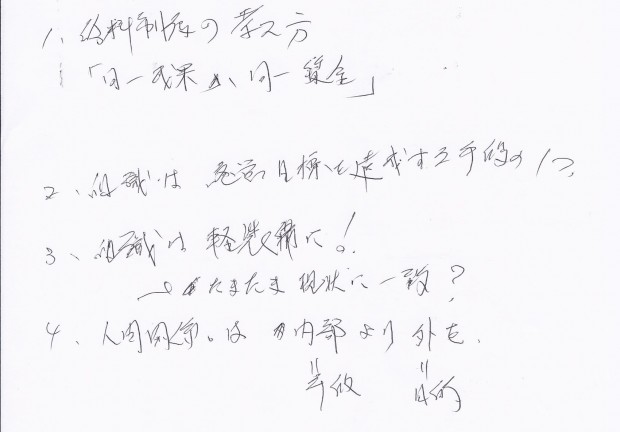 1、給料制度の考え方
「同一成果 同一賃金」
2、組織は 経営目標を達成する手段の1つ
3、組織は 軽装備に!
→ たまたま 現状に一致?
4、人間関係は 内部より外を、
〃手段 〃目的